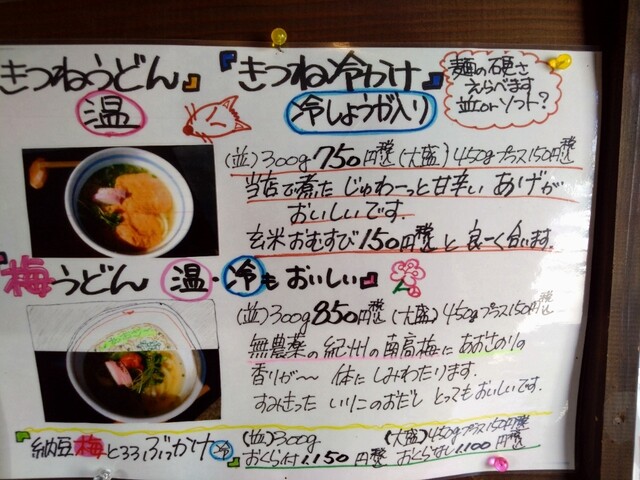 きつねうどん』
温
『きつね冷かけ』
冷しょうが入り
麺の硬さ
えらべます
並orソフト?
(並)300g750円税込(大盛)450gプラス150円税込
当店で煮た じゅわーっと甘辛い あげが
おいしいです.
玄米おむすび150円税込と 良ーく合います.
『梅うどん 温・冷も おいしい』
(並)300g850円税込(大盛)450gプラス150円税込
無農薬の紀州の南高梅にあおさのりの
香りが〜 体に しみわたります.
すみきった いりこのおだし とってもおいしいです.
『納豆梅とろろぶっかけ冷』
(並)300g (大盛)450gプラス150円税込
おくら付1.150円税込 おくらなし1.100円税込